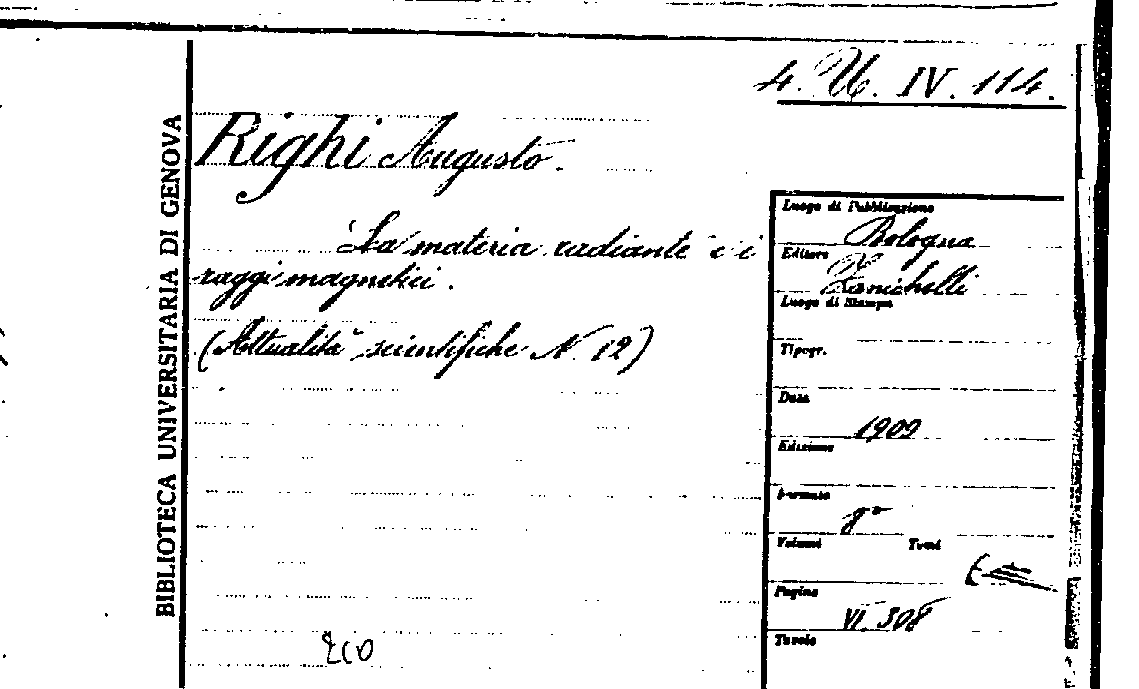 4. U. IV. 114.
BIBLIOTECA UNIVERSITARIA DI GENOVA
Righi Augusto.
La materia radiante e i
raggi magnetici.
(Attualità scientifiche N. 12)
Luogo di Pubblicazione
Bologna
Editore
Zanichelli
Luogo di Stampa
Tipogr.
Data
1909
Edizione
Formato
8°
Volumi Tomi
Pagine
VI. 308
Tavole